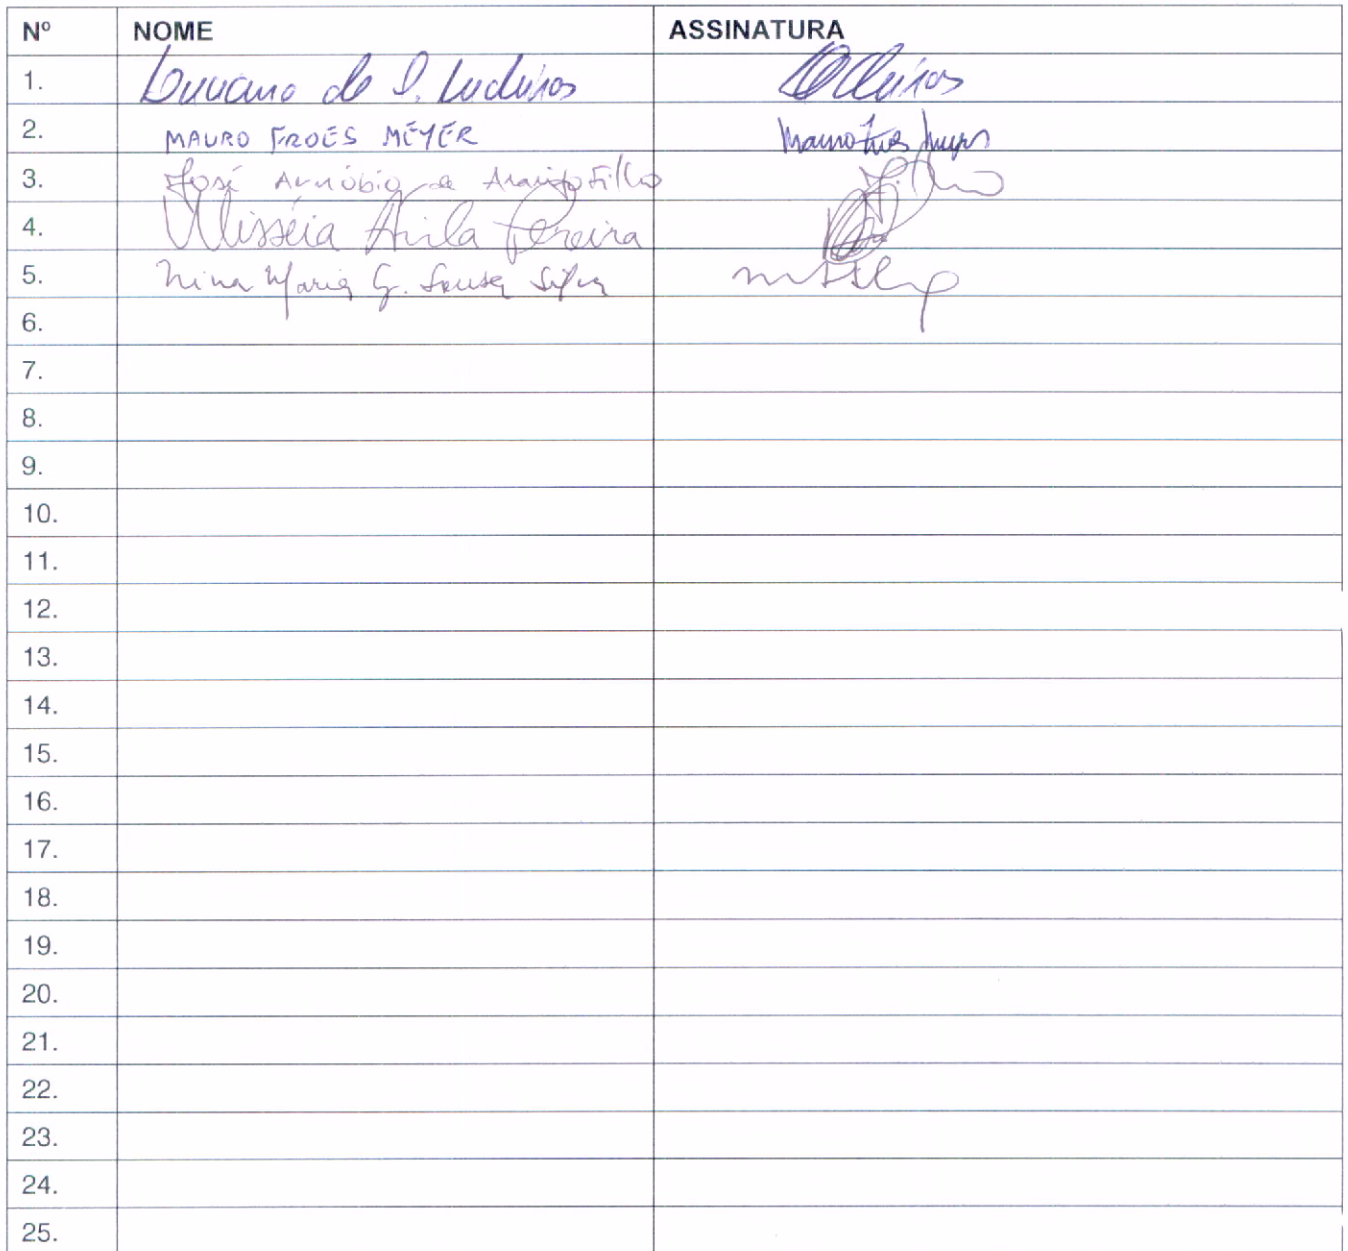 Nº NOME ASSINATURA
1. Luciano de S.
2. MAURO FROES MEYER Mauro Froes Meyer
3. José Arnóbio de Araújo Filho
4. Ulisséia Ávila Pereira
5. Nina Maria G. Sousa Silva
6.
7.
8.
9.
10.
11.
12.
13.
14.
15.
16.
17.
18.
19.
20.
21.
22.
23.
24.
25.